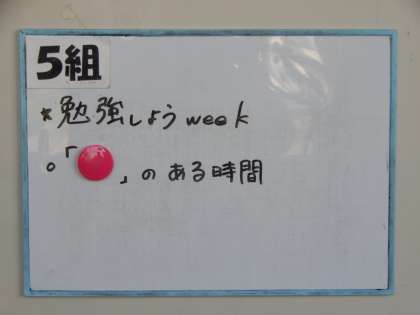 5組
*勉強しようweek
。「 」のある時間